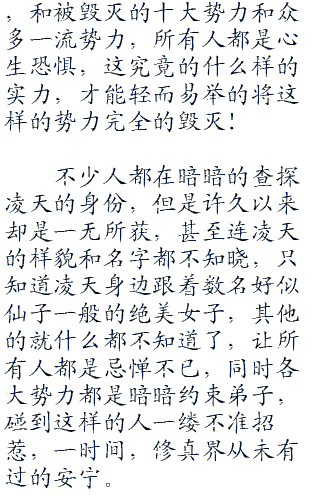 ，和被毁灭的十大势力和众
多一流势力，所有人都是心
生恐惧，这究竟的什么样的
实力，才能轻而易举的将这
样的势力完全的毁灭！
不少人都在暗暗的查探
凌天的身份，但是许久以来
却是一无所获，甚至连凌天
的样貌和名字都不知晓，只
知道凌天身边跟着数名好似
仙子一般的绝美女子，其他
的就什么都不知道了，让所
有人都是忌惮不已，同时各
大势力都是暗暗约束弟子，
碰到这样的人一缕不准招
惹，一时间，修真界从未有
过的安宁。